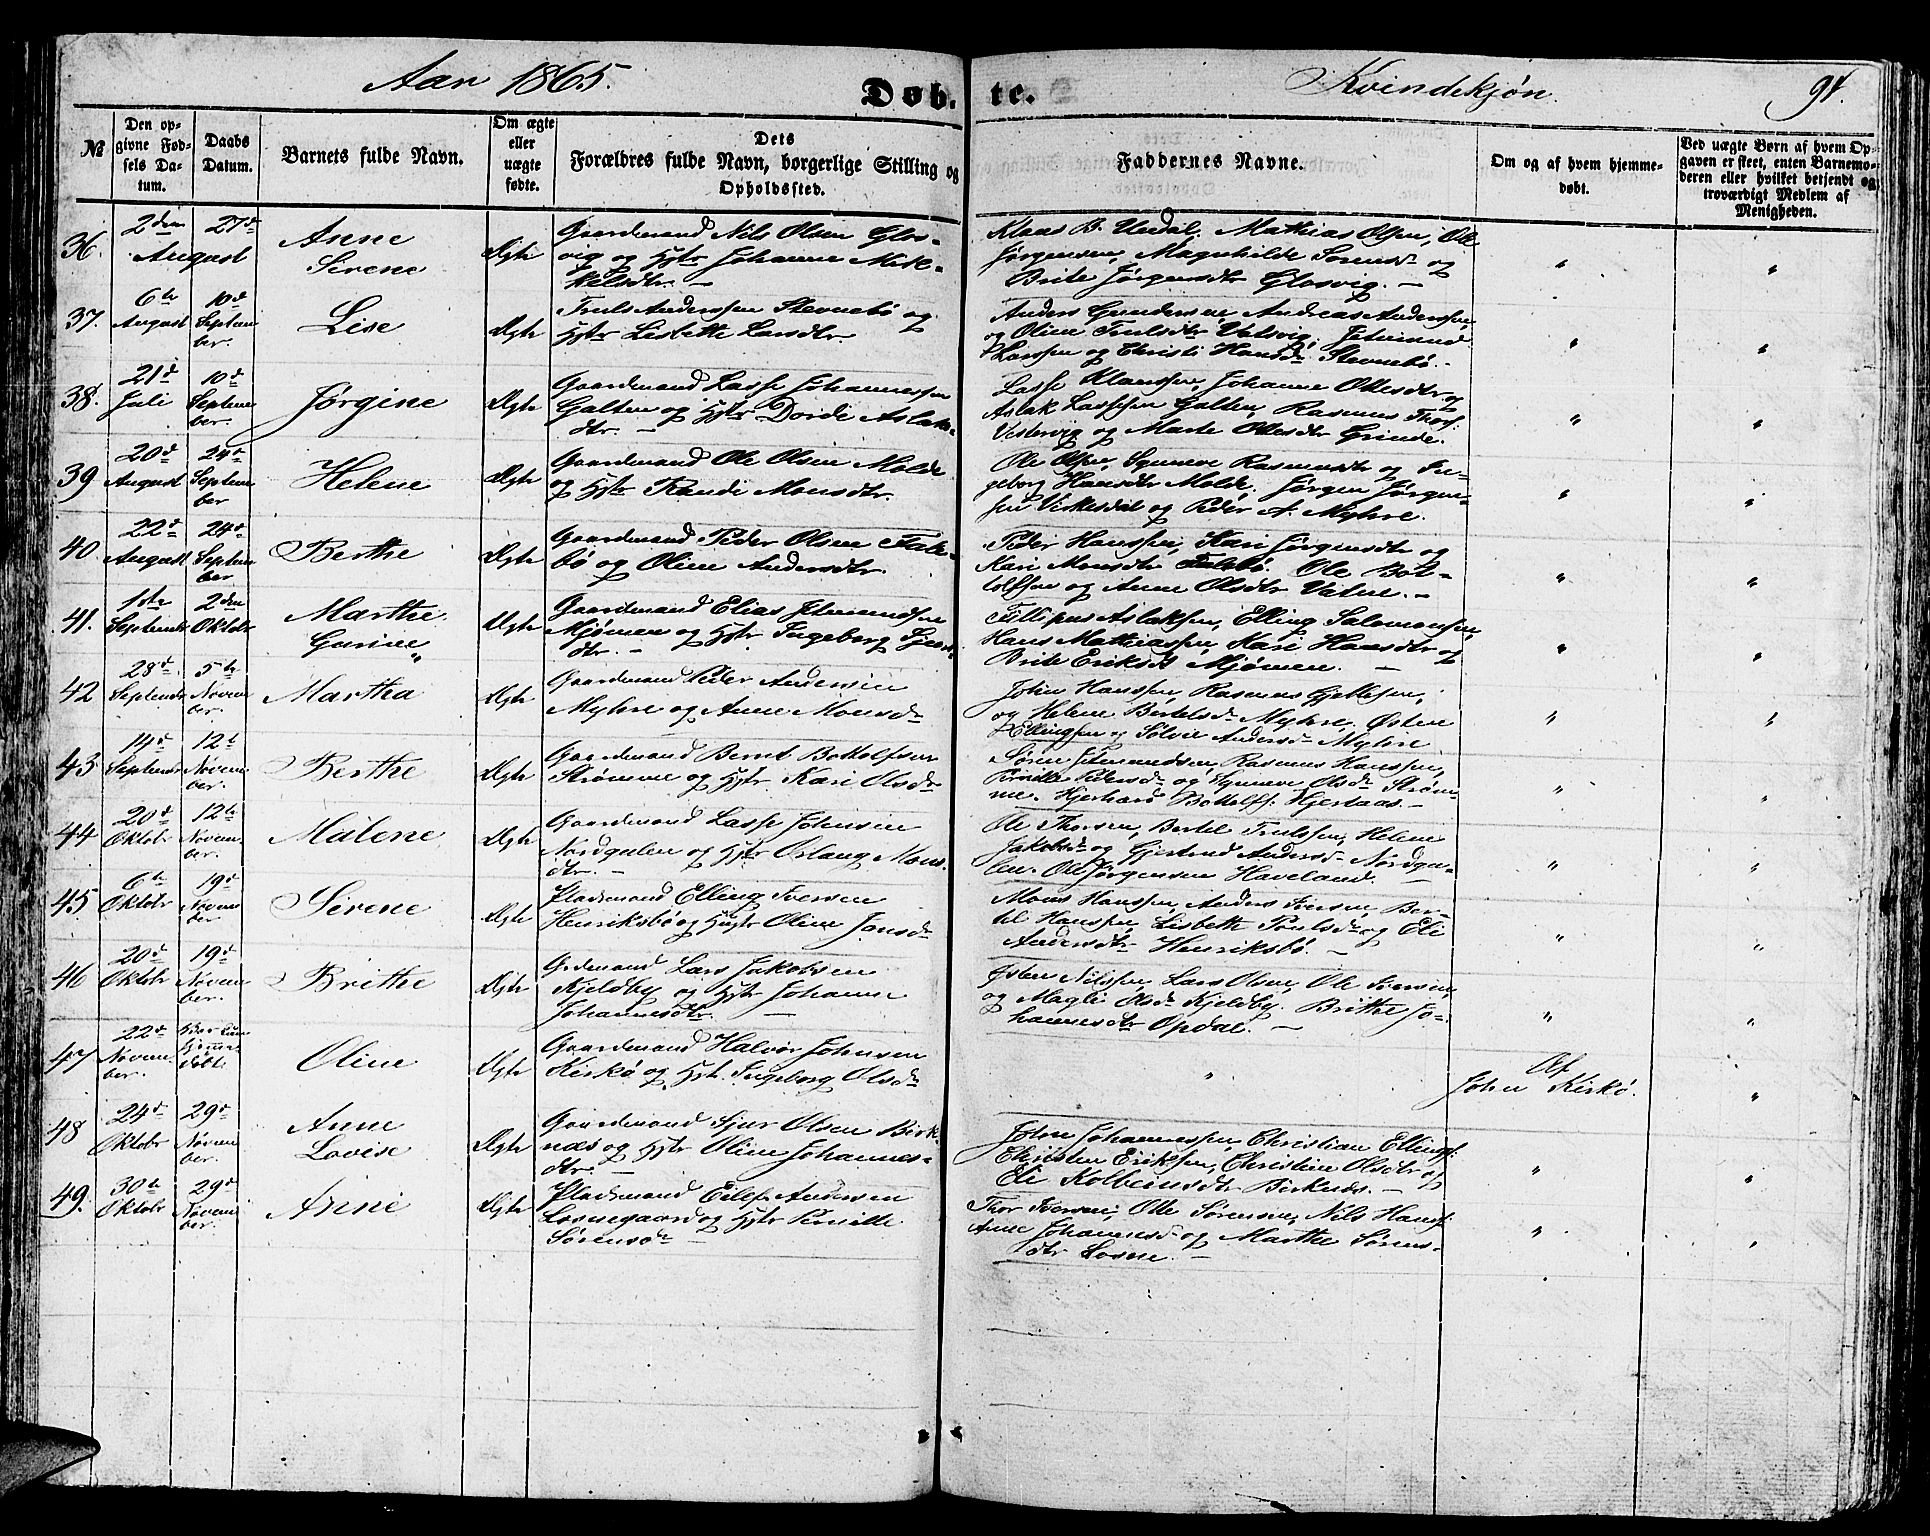 Aar 1865.
Døb-te.
Kvindekjøn.
91.
№
Den opgivne Fødsels Datum.
Daabs Datum.
Barnets fulde Navn.
Om ægte eller uægte fødte.
Dets Forældres fulde Navn, borgerlige Stilling og Opholdssted.
Faddernes Navne.
Om og af hvem hjemmedøbt.
Ved uægte Børn af hvem Opgaven er skeet, enten Barnemoderen eller hvilket betjendt og troværdigt Medlem af Menigheden.
36. 2den August 27de
Anne Sirene
Ægte
Gaardmand Nils Olsen Glosvig og Hstr Johanne Mikkelsdtr. —
Klaas B. Undal. Mathias Olsen, Ole
Jørgensen, Magnhilde Sørensd og
Brite Jørgensdtr Glosvig. —
" "
37. 6te August 10de September.
Lise
Ægte
Truls Anderssen Stevnebø og
Hstr Lisbette Larsdtr.
Anders Gundersen, Andreas Anderssen,
og Oline Trulsdtr
Larssen og Christi Hansd Stevnebø. —
" "
38. 21de Juli 10de September.
Jørgine
Ægte
Gaardmand Lasse Johannessen
Galten og Hstr Dorde Aslaks-
dtr. —
Lasse Klaussen, Johanne Ottesdtr og
Aslak Lassesen Galten, Rasmus Thos:
Vestervig og Marte Ottesdtr Grinde.
" "
39 20de August 24de September
Helene
Ægte
Gaardmand Ole Olsen Molde
og Hstr Randi Monsdtr.
Ole Olsen, Synneve Rasmusdtr og In-
geborg Hansdtr Molde. Jørgen Jørgen-
sen Virkesdal og Peder A. Myhre.
" "
40. 22de August 24de September
Berthe
Ægte
Gaardmand Peder Olsen Take-
bø og Oline Andersdtr.
Peder Hanssen, Kari Jørgensdtr og
Kari Monsdtr Takebø. Ole Bot-
tolfsen og Anne Olsdtr Vatne. —
" "
41. 1ste Septembr 2den Oktobr
Marthe Gurine "
Ægte
Gaardmand Elias Jetmundsen
Mjømen og Hstr Ingeborg
dtr. —
Fillipus Aslaksen, Elling Salomonsen,
Hans Mathiassen, Kari Hansdtr og
Brite Eriksd Mjømen. —
" "
42 28de Septembr 5te November.
Martha
Ægte
Gaardmand Peder Andersen
Myhre og Anne Monsd
John Hanssen, Rasmus Gjetlesen,
og Helene Bertelsd Myhre, Østen
Ellingsen og Sølvie Andersd Myhre
" "
43 14de Septembr 12te November.
Berthe
Ægte
Gaardmand Bernt Bottolfsen
Strømme og Hstr Kari Olsd
Søren Jetmundsen, Rasmus Hanssen,
Pernille Pedersd og Synneve Olsd Strøm-
me. Gjerhard Bottolfs. Hjertaas. —
" "
44 20de Oktobr 12te November.
Malene
Ægte
Gaardmand Lasse Johnsen
Nordgulen og Hstr Øslaug Mons-
dtr. —
Ole Thorsen, Bertel Trulssen, Helene
Jakobsd og Gjertrud Andersd Nordgu-
len. Ole Jørgensen Haveland. —
" "
45. 6te Oktobr 19de November
Sirene
Ægte
Pladsmand Elling Iversen
Henriksbø og Hustr Oline Jonsd
Mons Hanssen, Anders Iversen, Ber-
til Hanssen, Lisbeth Poulsd og Eli
Andersdtr Henriksbø. —
" "
46 20de Oktobr 19de November.
Brithe
Ægte
Grdmand Lars Jakobsen
Kjeldby og Hstr Johanne
Johannesdtr. —
Østen Nilssen, Lars Olsen, Ole Iversen,
og Magli Olsd Kjeldby. Brithe Jo-
hannesdtr Opdal. —
" "
47 22de November. Har kun hjemmedøbt
Oline
Ægte
Gaardmand Halvor Johnsen
Kirkø og Hstr. Ingeborg Olsd
"
Af
John Kirkø.
"
48 24de Oktobr 29de November.
Anne Lovise
Ægte
Gaardmand Sjur Olsen Birk-
næs og Hstr Oline Johannes-
dtr. —
John Johannessen, Christian Ellings:
Christen Eriksen, Christine Olsdtr og
Eli Kolbeinsdtr Birknæs. —
" "
49. 30te Oktobr 29de November.
Anne
Ægte
Pladsmand Eilef Andersen
Losnegaard og Hstr Pernille
Sørensd
Thor Iversen, Olle Sørensen, Nils Hans:
Anne Johannesd og Marthe Sørens-
dtr Losne. —
" "